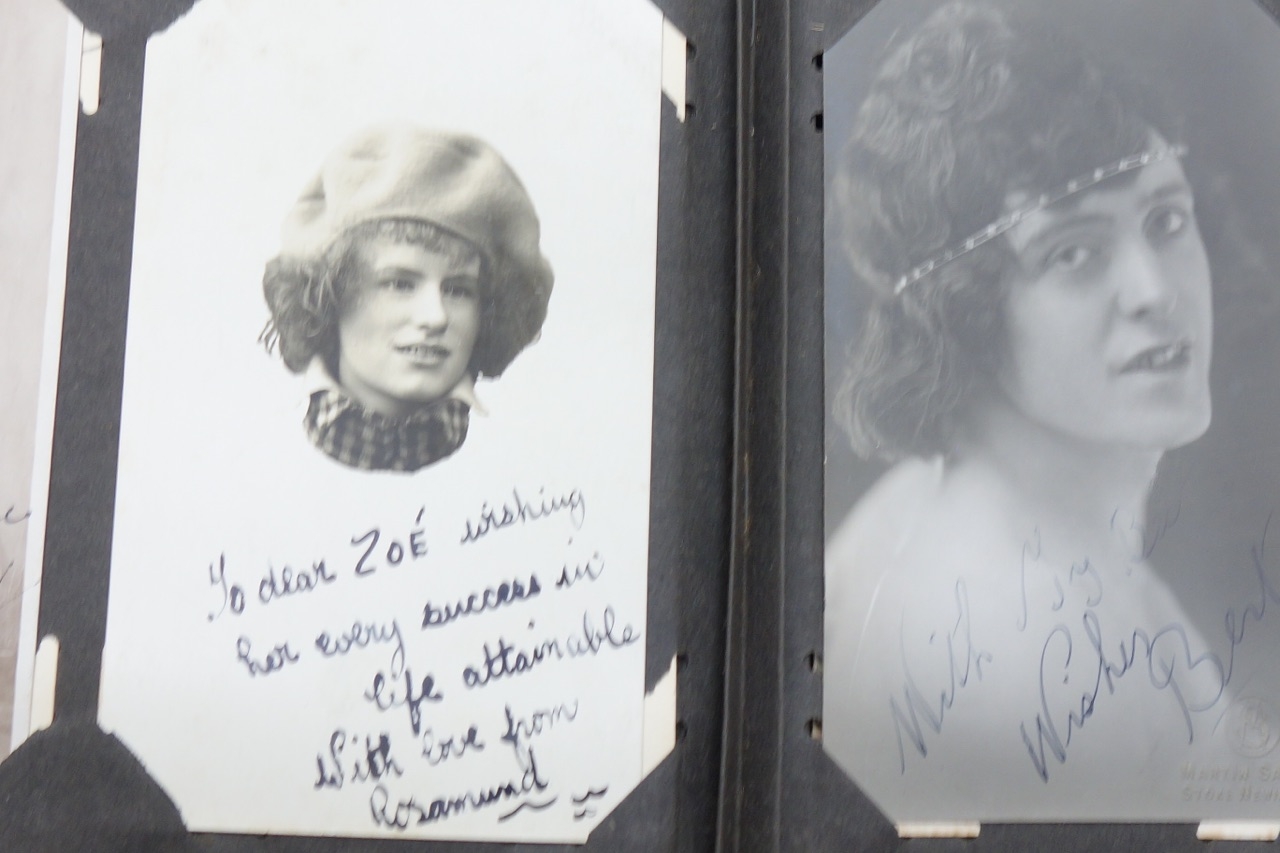 To dear ZOÉ wishing
her every success in
life attainable
With love from
Rosamund
With
Wishes
MARTIN
STOKE NEWI